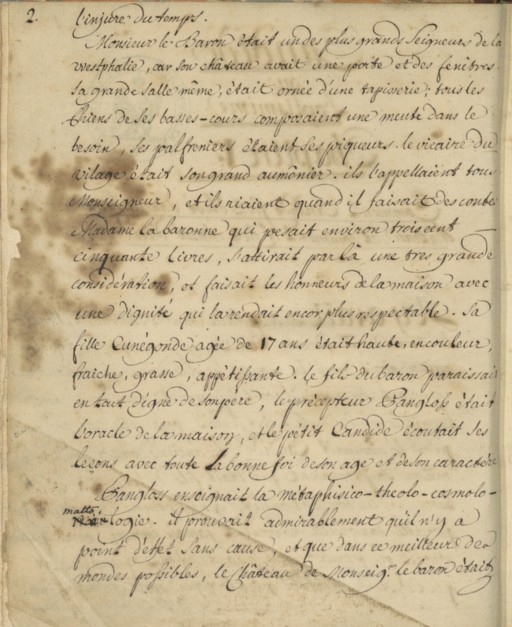 2. l'injure du temps.
Monsieur le Baron était un des plus grands Seigneurs de la
Westphalie, car son château avait une porte et des fenêtres.
Sa grande Salle même, était ornée d'une tapisserie; tous les
Chiens de Ses basses-cours composaient une meute dans le
besoin, Ses palfreniers étaient ses piqueurs. le vicaire du
vilage était son grand aumônier. ils l'appellaient tous
Monseigneur, et ils riaient quand il faisait des contes
Madame la baronne qui pesait environ trois cent
cinquante livres, S'attirait par là une tres grande
considération, et faisait les honneurs de la maison avec
une dignité qui la rendait encor plus respectable. Sa
fille Cunégonde agée de 17 ans était haute, en couleur,
fraiche, grasse, appétissante. le fils du baron paraissait
en tout digne de son pere, le précepteur Pangloss était
l'oracle de la maison, et le petit Candide écoutait ses
leçons avec toute la bonne foi de son age et de son caractère
Pangloss enseignait la métaphisico-theolo-cosmolo-
matto,
logie. Il prouvait admirablement qu'il n'y a
point d'effet sans cause, et que dans ce meilleur des
mondes possibles, le Château de Monseigr. le baron était